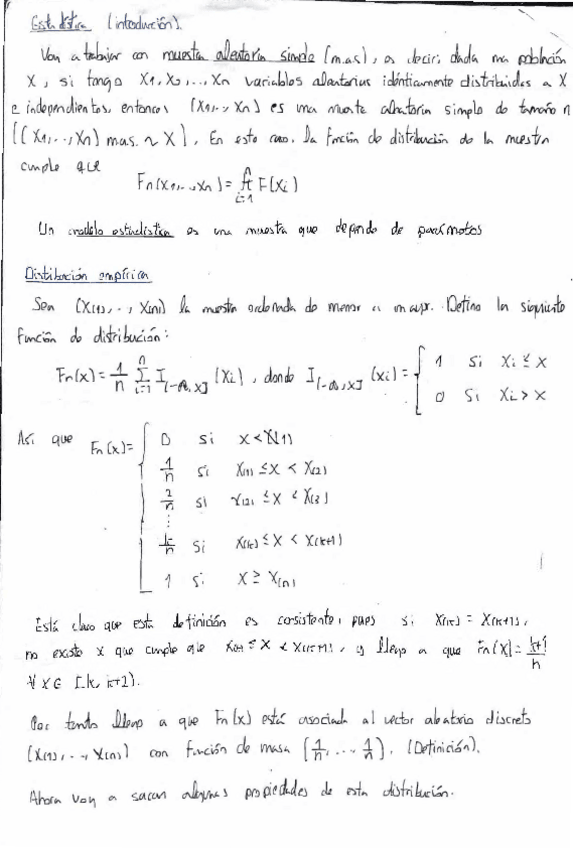 Estadística (introducción).
Voy a trabajar con muestra aleatoria simple (m.a.s), es decir, dada una población
X, si tengo X1, X2, ..., Xn variables aleatorias idénticamente distribuidas a X
e independientes, entonces (X1, ..., Xn) es una muestra aleatoria simple de tamaño n
[(X1, ..., Xn) m.a.s. ~ X]. En este caso, la función de distribución de la muestra
cumple que
Fn(x1, ..., xn) = ∏_{i=1}^{n} F(xi)
Un modelo estadístico es una muestra que depende de parámetros
Distribución empírica
Sea (X(1), ..., X(n)) la muestra ordenada de menor a mayor. Defino la siguiente
función de distribución:
Fn(x) = 1/n ∑_{i=1}^{n} I_(-∞, x] (xi), donde I_(-∞, x] (xi) = { 1 si xi ≤ x
0 si xi > x
Así que Fn(x) = { 0 si x < X(1)
1/n si X(1) ≤ x < X(2)
2/n si X(2) ≤ x < X(3)
⋮
k/n si X(k) ≤ x < X(k+1)
1 si x ≥ X(n)
Está claro que esta definición es consistente, pues si X(k) = X(k+1),
no existe x que cumple que X(k) ≤ x < X(k+1), y llego a que Fn(x) = k+1/n
∀ x ∈ [k, k+2).
Por tanto llego a que Fn(x) está asociada al vector aleatorio discreto
(X(1), ..., X(n)) con función de masa (1/n, ..., 1/n). (Definición).
Ahora voy a sacar algunas propiedades de esta distribución.